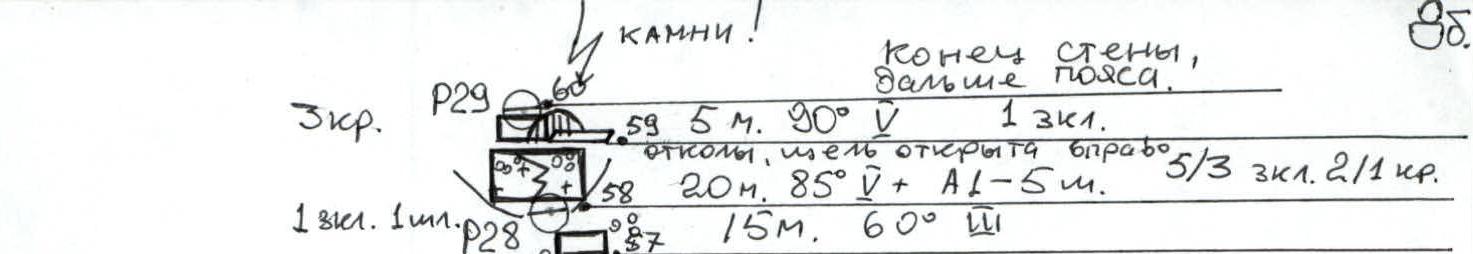 КАМНИ!
8б.
конец стены,
дальше пояса.
3кр. Р29 60
59 5 м. 90° V 1 зкл.
отколы, щель открыта вправо
58 20м. 85° V+ А1-5м. 5/3 зкл. 2/1 кр.
1 зкл. 1шл. Р28
57 15м. 60° III